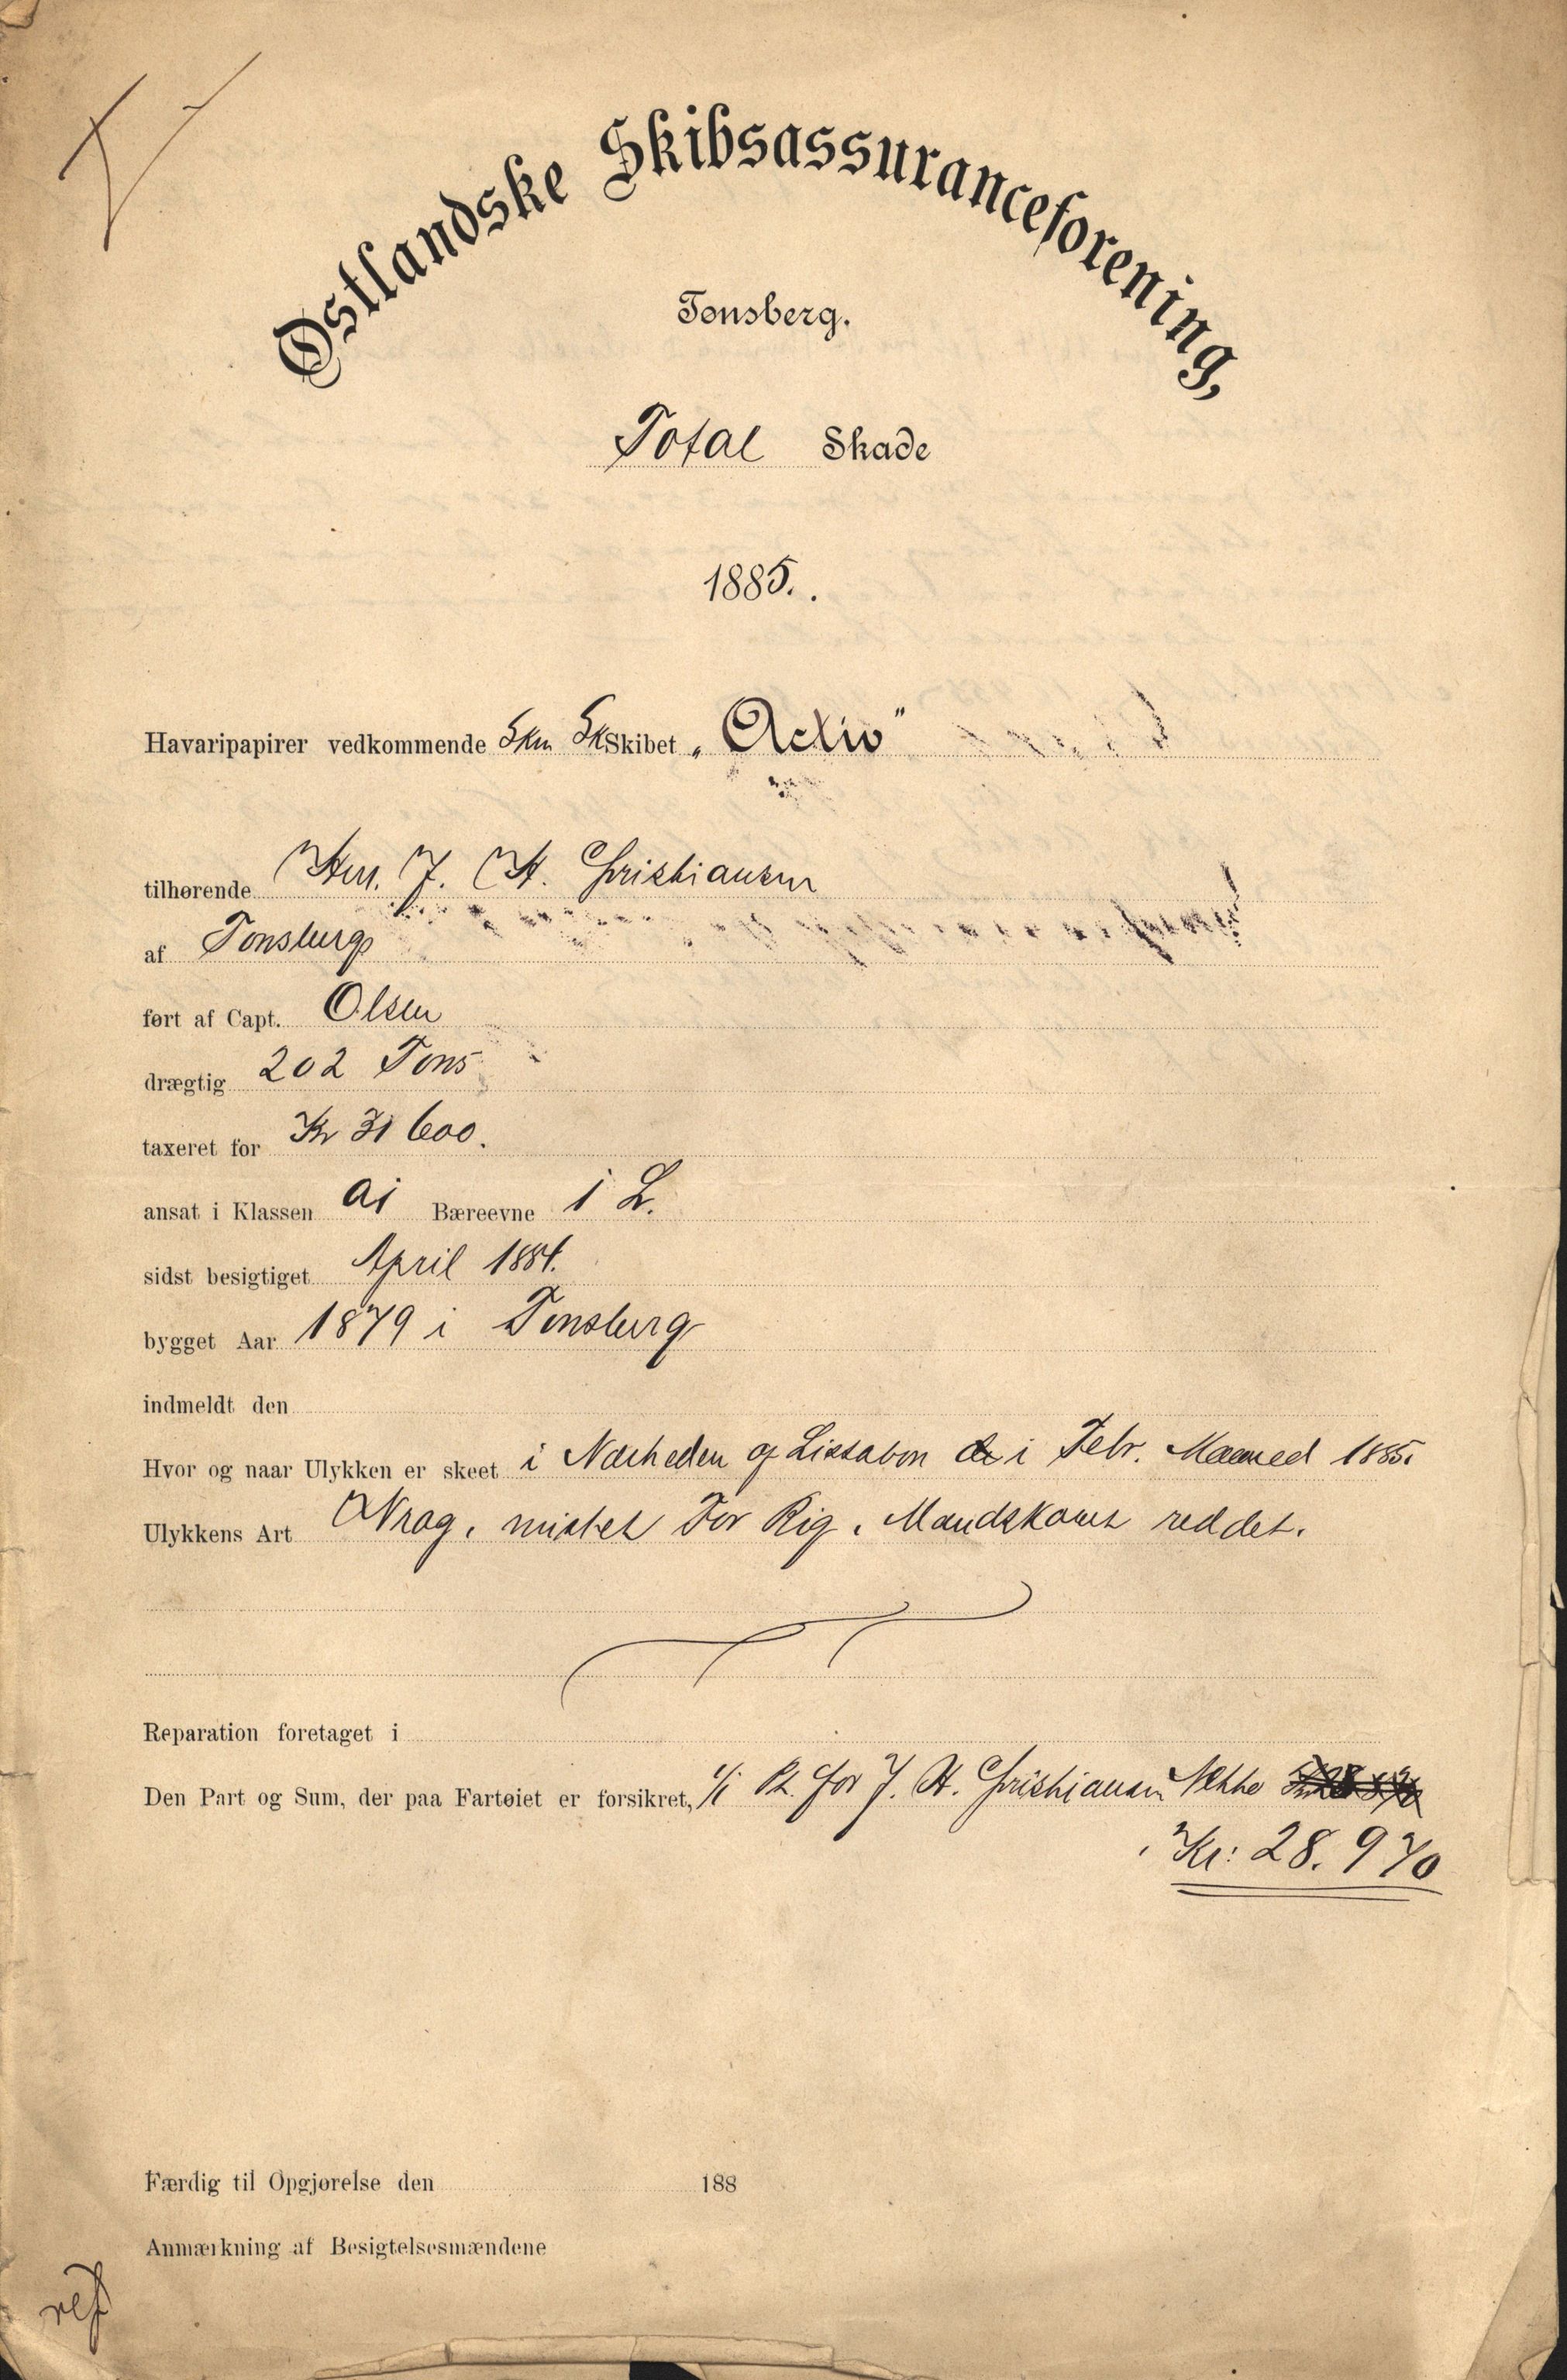 Østlandske Skibsassuranceforening,
Tønsberg.
Total Skade
1885.
Havaripapirer vedkommende Skm Sk Skibet „Activ"
tilhørende Herr. J. H. Christiansen
af Tønsberg
ført af Capt. Olsen
drægtig 202 Tons
taxeret for Kr 31 600.
ansat i Klassen A1 Bæreevne 1 L.
sidst besigtiget April 1884.
bygget Aar 1879 i Tønsberg
indmeldt den
Hvor og naar Ulykken er skeet i Nærheden af Lissabon i Febr. Maaned 1885.
Ulykkens Art Vrag, mistet For Rig. Mandskabet reddet.
Reparation foretaget i
Den Part og Sum, der paa Fartøiet er forsikret, 1/1 Pt. for J. H. Christiansen Netto
Kr: 28.970
Færdig til Opgjørelse den 188
Anmærkning af Besigtelsesmændene